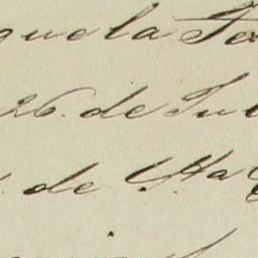 quela Ter
26. de Jul
. de Ha